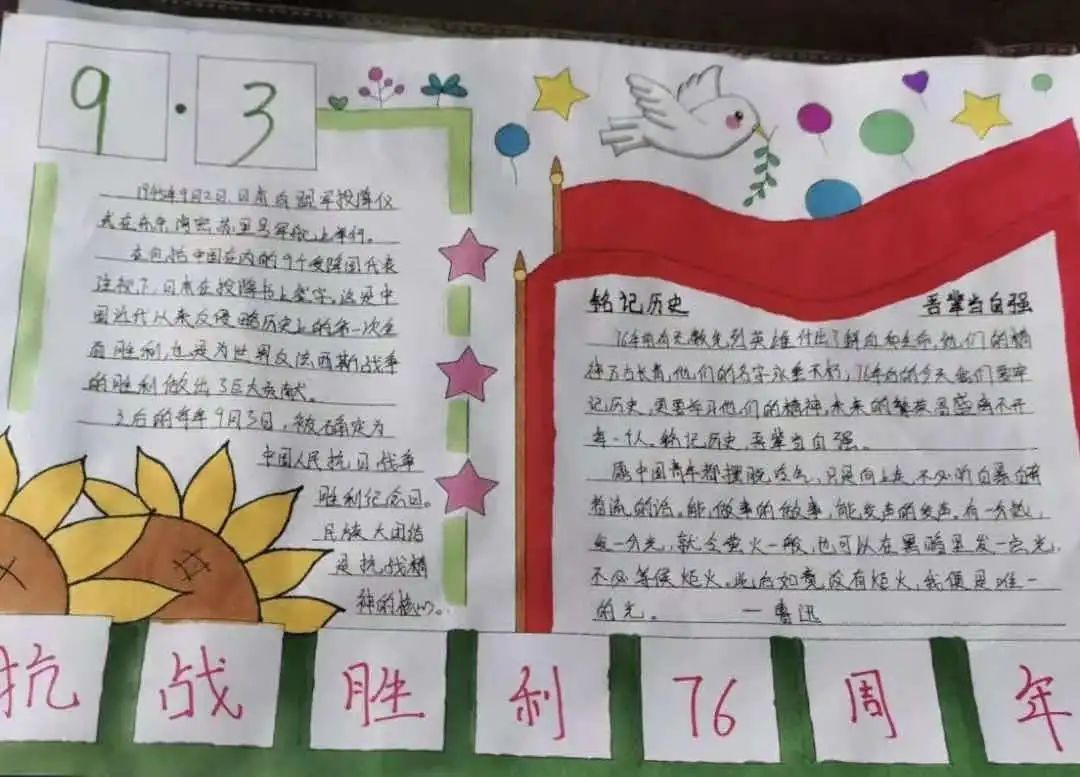 9·3
1945年9月2日,日本向盟军投降仪
式在东京湾密苏里号军舰上举行。
在包括中国在内的9个受降国代表
注视下,日本在投降书上签字。这是中
国近代以来反侵略历史上的第一次全
面胜利,也是为世界反法西斯战争
的胜利做出了巨大贡献。
之后的每年9月3日,被确定为
中国人民抗日战争
胜利纪念日。
民族大团结
是抗战精
神的核心。
铭记历史 吾辈当自强
76年前有无数先烈英雄付出了鲜血和生命,他们的精
神万古长青,他们的名字永垂不朽,76年后的今天我们要牢
记历史,更要学习他们的精神,未来的繁荣昌盛离不开
每一个人。铭记历史,吾辈当自强。
愿中国青年都摆脱冷气,只是向上走,不必听自暴自弃
者流的话。能做事的做事,能发声的发声。有一分热,
发一分光,就令萤火一般,也可以在黑暗里发一点光,
不必等候炬火。此后如竟没有炬火,我便是唯一
的光。 —鲁迅
抗战胜利76周年